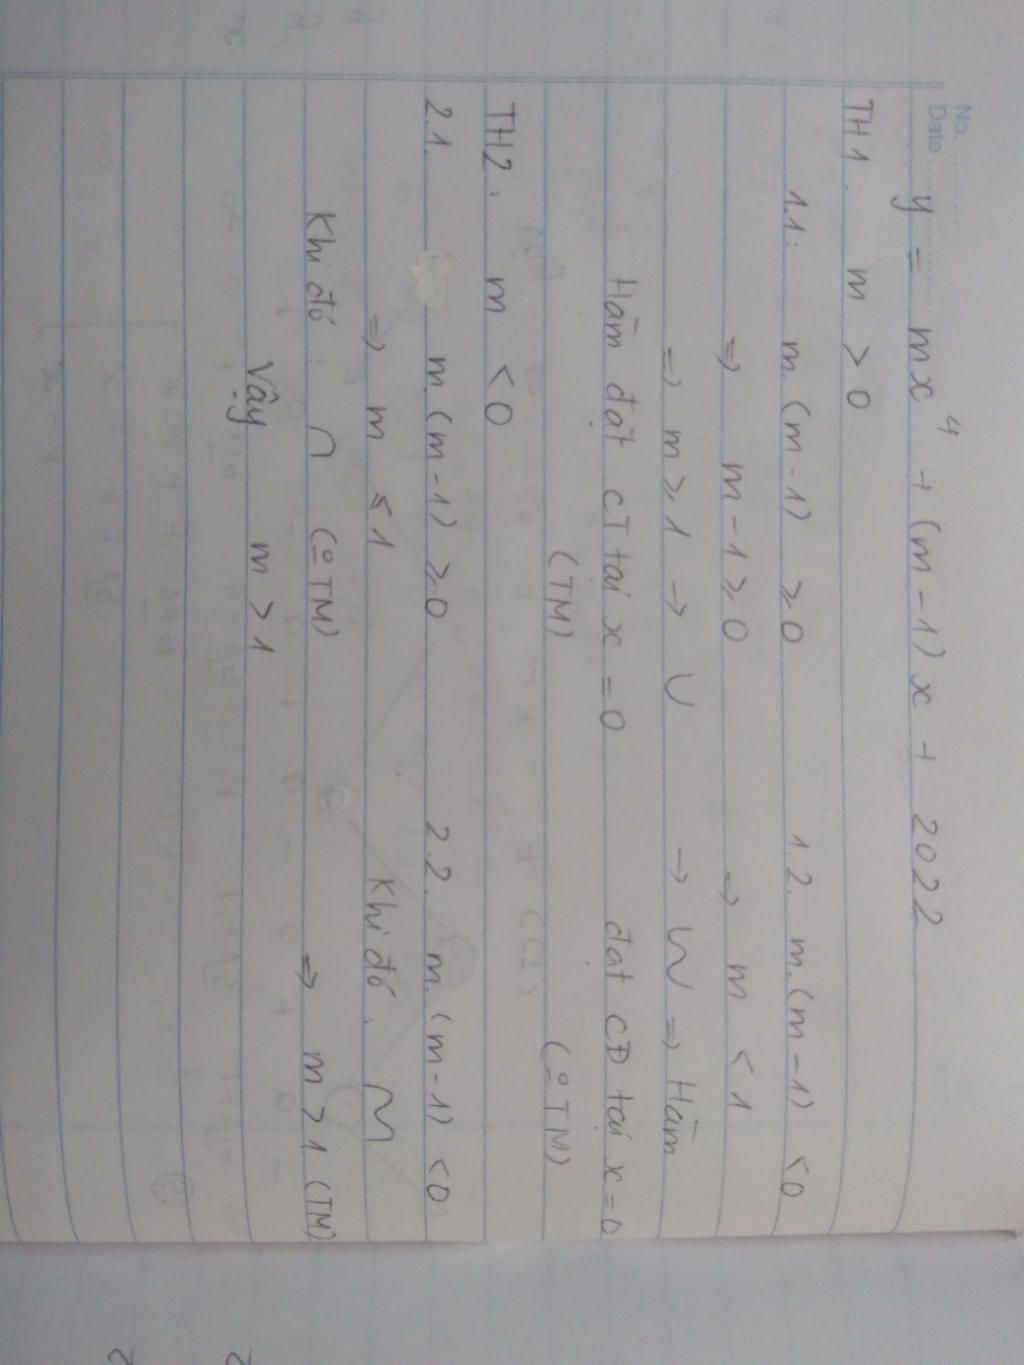 No.
Date
y = mx⁴ + (m-1)x + 2022
TH1. m > 0
1.1. m.(m-1) ≥ 0 1.2. m.(m-1) < 0
=> m-1 ≥ 0 => m < 1
=> m ≥ 1 → ∪ → W => Hàm
Hàm đạt CT tại x = 0 đạt CĐ tại x = 0
(TM) (ºTM)
TH2. m < 0
2.1. m.(m-1) ≥ 0 2.2. m.(m-1) < 0
=> m ≤ 1 Khi đó.
Khi đó: ∩ (ºTM) => m > 1 (TM)
Vậy m > 1